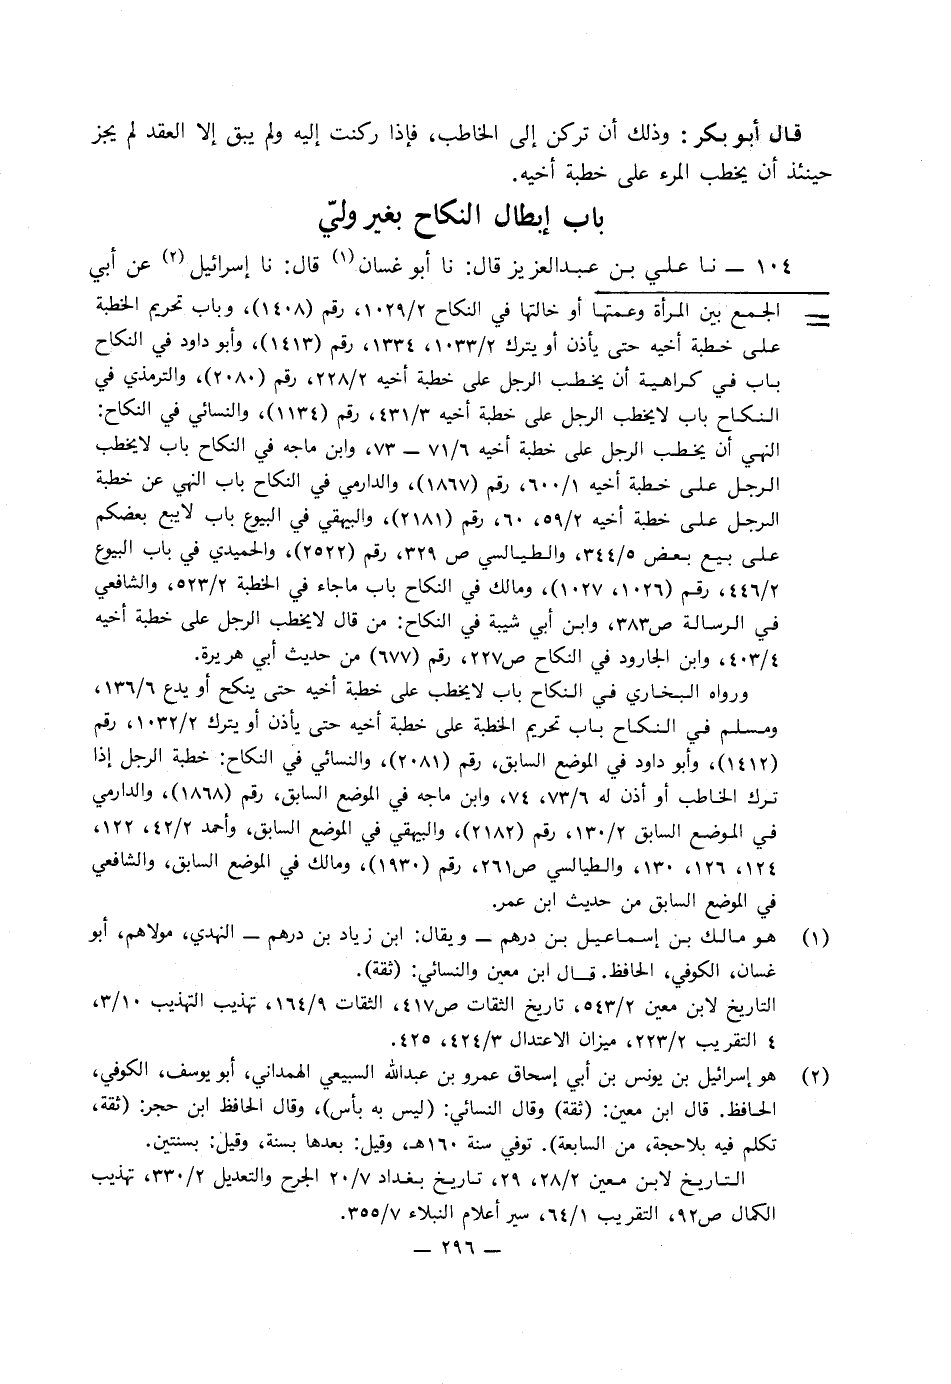 قال أبو بكر : وذلك أن تركن إلى الخاطب، فإذا ركنت إليه ولم يبق إلا العقد لم يجز
حينئذ أن يخطب المرء على خطبة أخيه.
باب إبطال النكاح بغير وليّ
١٠٤ ــ نا علي بن عبدالعزيز قال: نا أبو غسان(١) قال: نا إسرائيل(٢) عن أبي
= الجمع بين المرأة وعمتها أو خالتها في النكاح ١٠٢٩/٢، رقم (١٤٠٨)، وباب تحريم الخطبة
على خطبة أخيه حتى يأذن أو يترك ١٠٣٣/٢، ١٣٣٤، رقم (١٤١٣)، وأبو داود في النكاح
باب في كراهية أن يخطب الرجل على خطبة أخيه ٢٢٨/٢، رقم (٢٠٨٠)، والترمذي في
النكاح باب لايخطب الرجل على خطبة أخيه ٤٣١/٣، رقم (١١٣٤)، والنسائي في النكاح:
النهي أن يخطب الرجل على خطبة أخيه ٧١/٦ ــ ٧٣، وابن ماجه في النكاح باب لايخطب
الرجل على خطبة أخيه ٦٠٠/١، رقم (١٨٦٧)، والدارمي في النكاح باب النهي عن خطبة
الرجل على خطبة أخيه ٥٩/٢، ٦٠، رقم (٢١٨١)، والبيهقي في البيوع باب لايبع بعضكم
على بيع بعض ٣٤٤/٥، والطيالسي ص ٣٢٩، رقم (٢٥٢٢)، والحميدي في باب البيوع
٤٤٦/٢، رقم (١٠٢٦، ١٠٢٧)، ومالك في النكاح باب ماجاء في الخطبة ٥٢٣/٢، والشافعي
في الرسالة ص٣٨٣، وابن أبي شيبة في النكاح: من قال لايخطب الرجل على خطبة أخيه
٤٠٣/٤، وابن الجارود في النكاح ص٢٢٧، رقم (٦٧٧) من حديث أبي هريرة.
ورواه البخاري في النكاح باب لايخطب على خطبة أخيه حتى ينكح أو يدع ١٣٦/٦،
ومسلم في النكاح باب تحريم الخطبة على خطبة أخيه حتى يأذن أو يترك ١٠٣٢/٢، رقم
(١٤١٢)، وأبو داود في الموضع السابق، رقم (٢٠٨١)، والنسائي في النكاح: خطبة الرجل إذا
ترك الخاطب أو أذن له ٧٣/٦، ٧٤، وابن ماجه في الموضع السابق، رقم (١٨٦٨)، والدارمي
في الموضع السابق ١٣٠/٢، رقم (٢١٨٢)، والبيهقي في الموضع السابق، وأحمد ٤٢/٢، ١٢٢،
١٢٤، ١٢٦، ١٣٠، والطيالسي ص٢٦١، رقم (١٩٣٠)، ومالك في الموضع السابق، والشافعي
في الموضع السابق من حديث ابن عمر.
(١) هو مالك بن إسماعيل بن درهم ــ ويقال: ابن زياد بن درهم ــ النهدي، مولاهم، أبو
غسان، الكوفي، الحافظ. قال ابن معين والنسائي: (ثقة).
التاريخ لابن معين ٥٤٣/٢، تاريخ الثقات ص٤١٧، الثقات ١٦٤/٩، تهذيب التهذيب ٣/١٠،
٤ التقريب ٢٢٣/٢، ميزان الاعتدال ٤٢٤/٣، ٤٢٥.
(٢) هو إسرائيل بن يونس بن أبي إسحاق عمرو بن عبدالله السبيعي الهمداني، أبو يوسف، الكوفي،
الحافظ. قال ابن معين: (ثقة) وقال النسائي: (ليس به بأس)، وقال الحافظ ابن حجر: (ثقة،
تكلم فيه بلاحجة، من السابعة). توفي سنة ١٦٠هـ، وقيل: بعدها بسنة، وقيل: بسنتين.
التاريخ لابن معين ٢٨/٢، ٢٩، تاريخ بغداد ٢٠/٧ الجرح والتعديل ٣٣٠/٢، تهذيب
الكمال ص٩٢، التقريب ٦٤/١، سير أعلام النبلاء ٣٥٥/٧.
ــ ٢٩٦ ــ